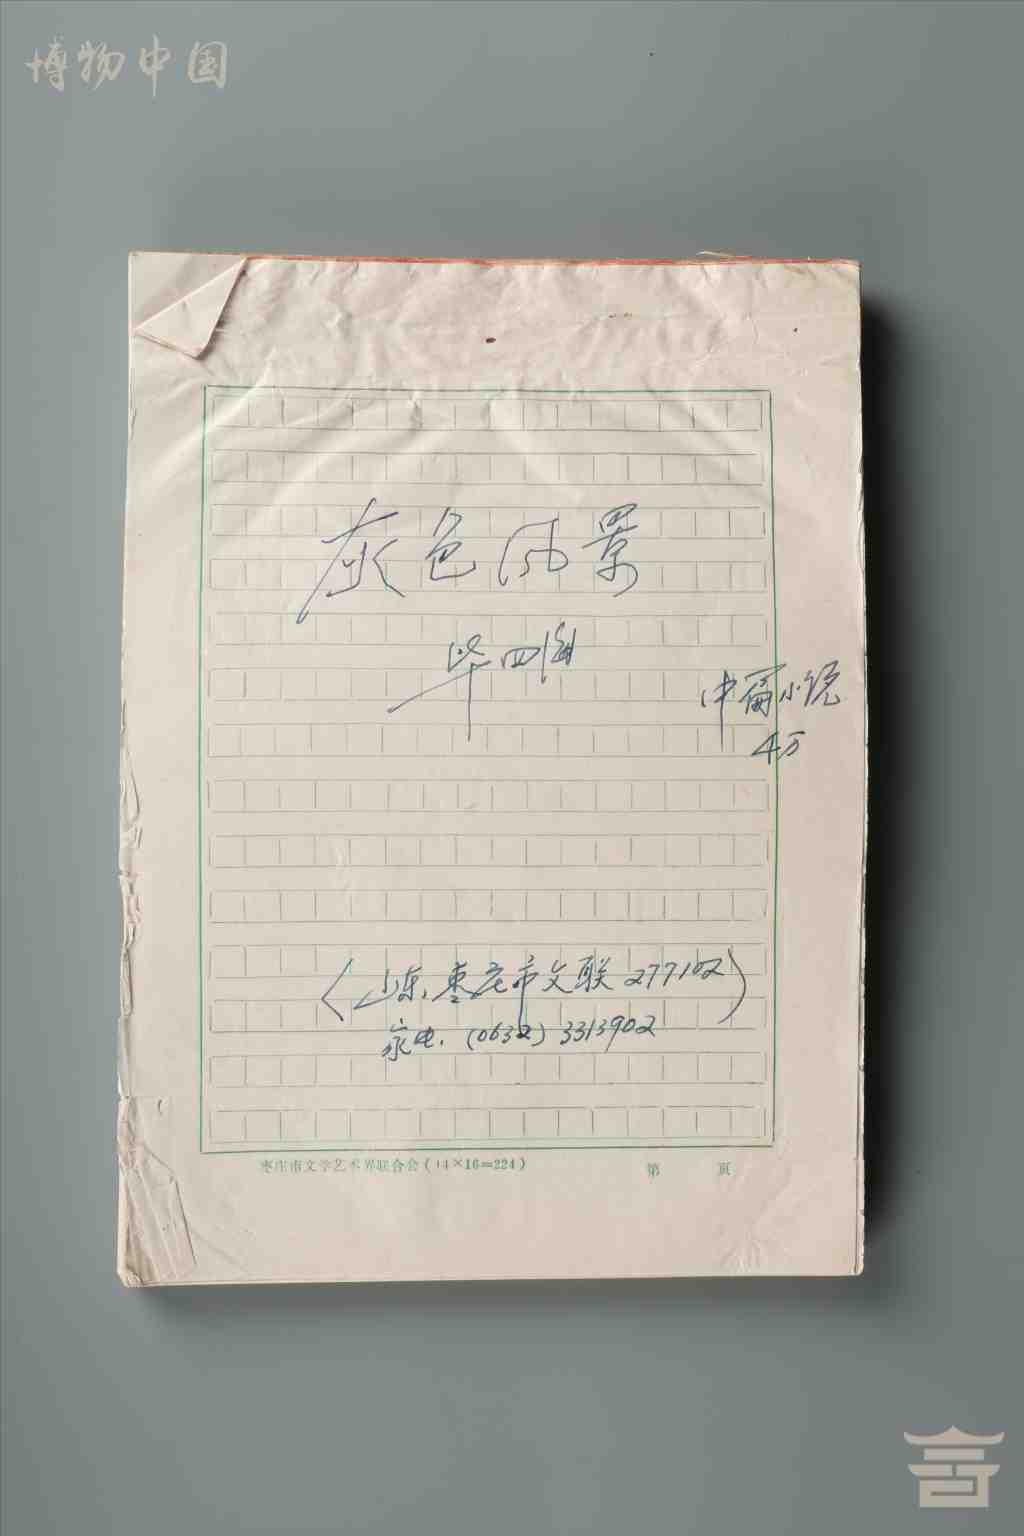 博物中国
灰色风景
毕四海
中篇小说
4万
（山东，枣庄市文联 277102）
家电．(0632) 3313902
枣庄市文学艺术界联合会（14×16=224） 第 页